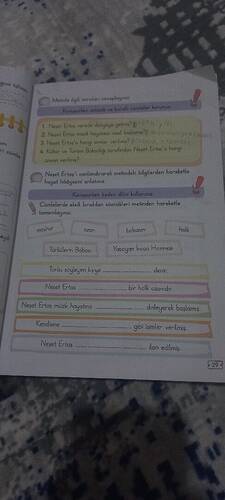 Metinle ilgili soruları cevaplayınız.
Konuşurken anlamlı ve kurallı cümleler kurunuz.
1. Neşet Ertaş nerede dünyaya geldi?
2. Neşet Ertaş müzik hayatına nasıl başlamış?
3. Neşet Ertaş'a hangi isimler verilmiş?
4. Kültür ve Turizm Bakanlığı tarafından Neşet Ertaş'a hangi
unvan verilmiş?
Neşet Ertaş'ı canlandırarak metindeki bilgilerden hareketle
hayat hikâyesini anlatınız.
Konuşurken beden dilini kullanınız.
Cümlelerde eksik bırakılan sözcükleri metinden hareketle
tamamlayınız.
ozan
babasını
halk
Türkülerin Babası
Yaşayan İnsan Hazinesi
Türkü söyleyen kişiye ........................ denir.
Neşet Ertaş ........................ bir halk ozanıdır.
Neşet Ertaş müzik hayatına ........................ dinleyerek başlamış.
Kendisine ........................ gibi isimler verilmiş.
Neşet Ertaş ........................ ilan edilmiş.
29